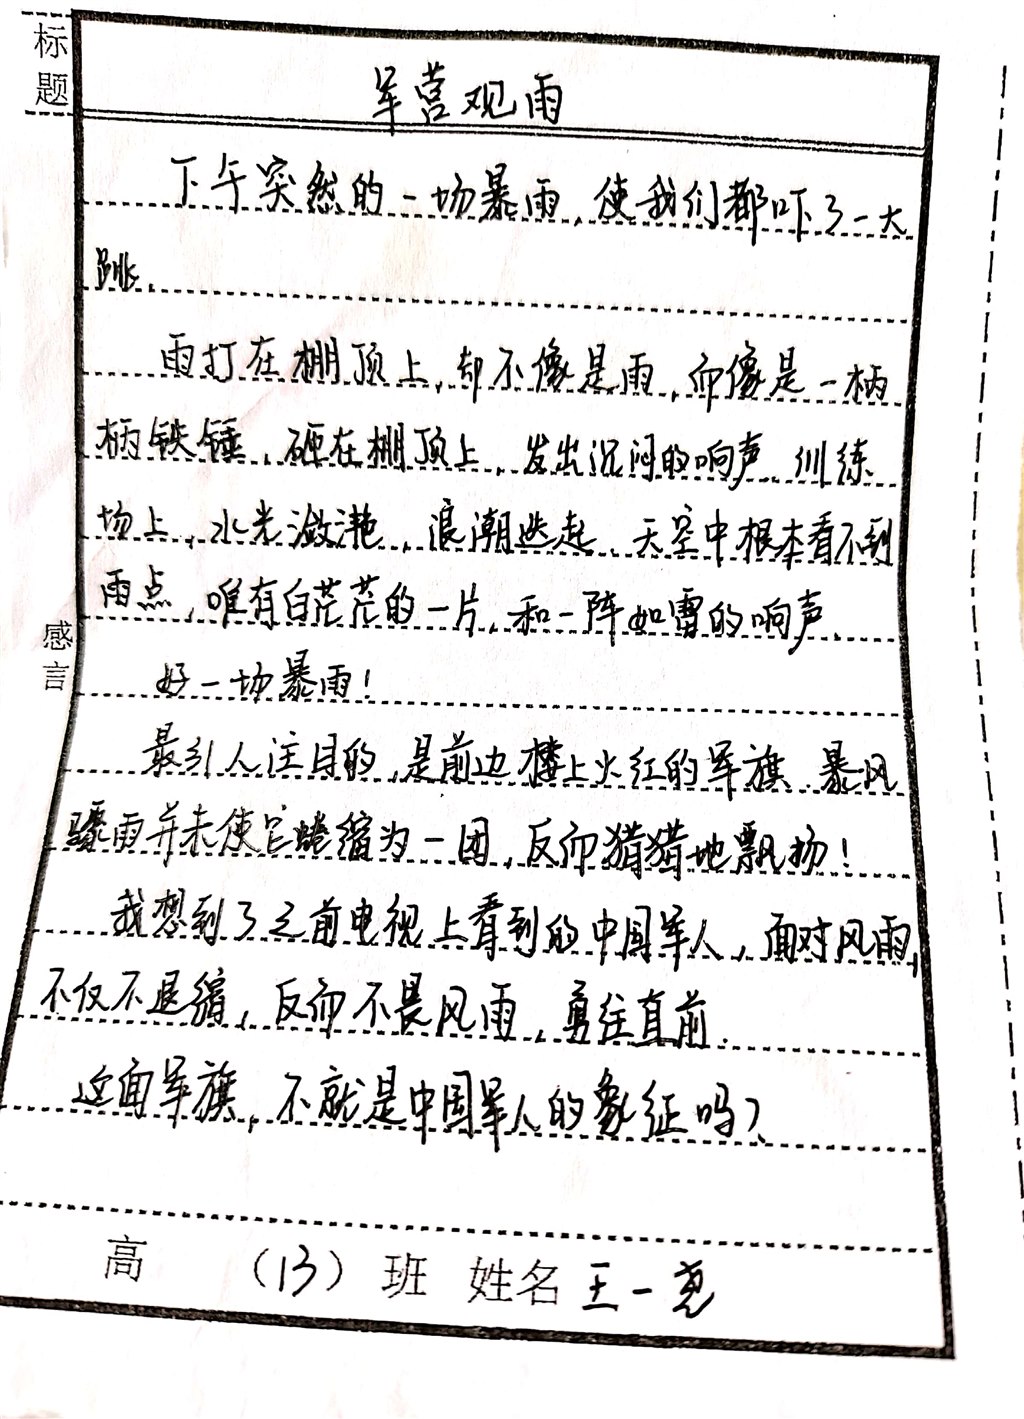 标题
军营观雨
下午突然的一场暴雨,使我们都吓了一大
跳.
雨打在棚顶上,却不像是雨,而像是一柄
柄铁锤,砸在棚顶上,发出沉闷的响声.训练
场上,水光潋滟,浪潮迭起.天空中根本看不到
雨点,唯有白茫茫的一片,和一阵如雷的响声.
感言
好一场暴雨!
最引人注目的,是前边楼上火红的军旗.暴风
骤雨并未使它蜷缩为一团,反而猎猎地飘扬!
我想到了之前电视上看到的中国军人,面对风雨,
不仅不退缩,反而不畏风雨,勇往直前.
这面军旗,不就是中国军人的象征吗?
高 (13)班 姓名 王一尧